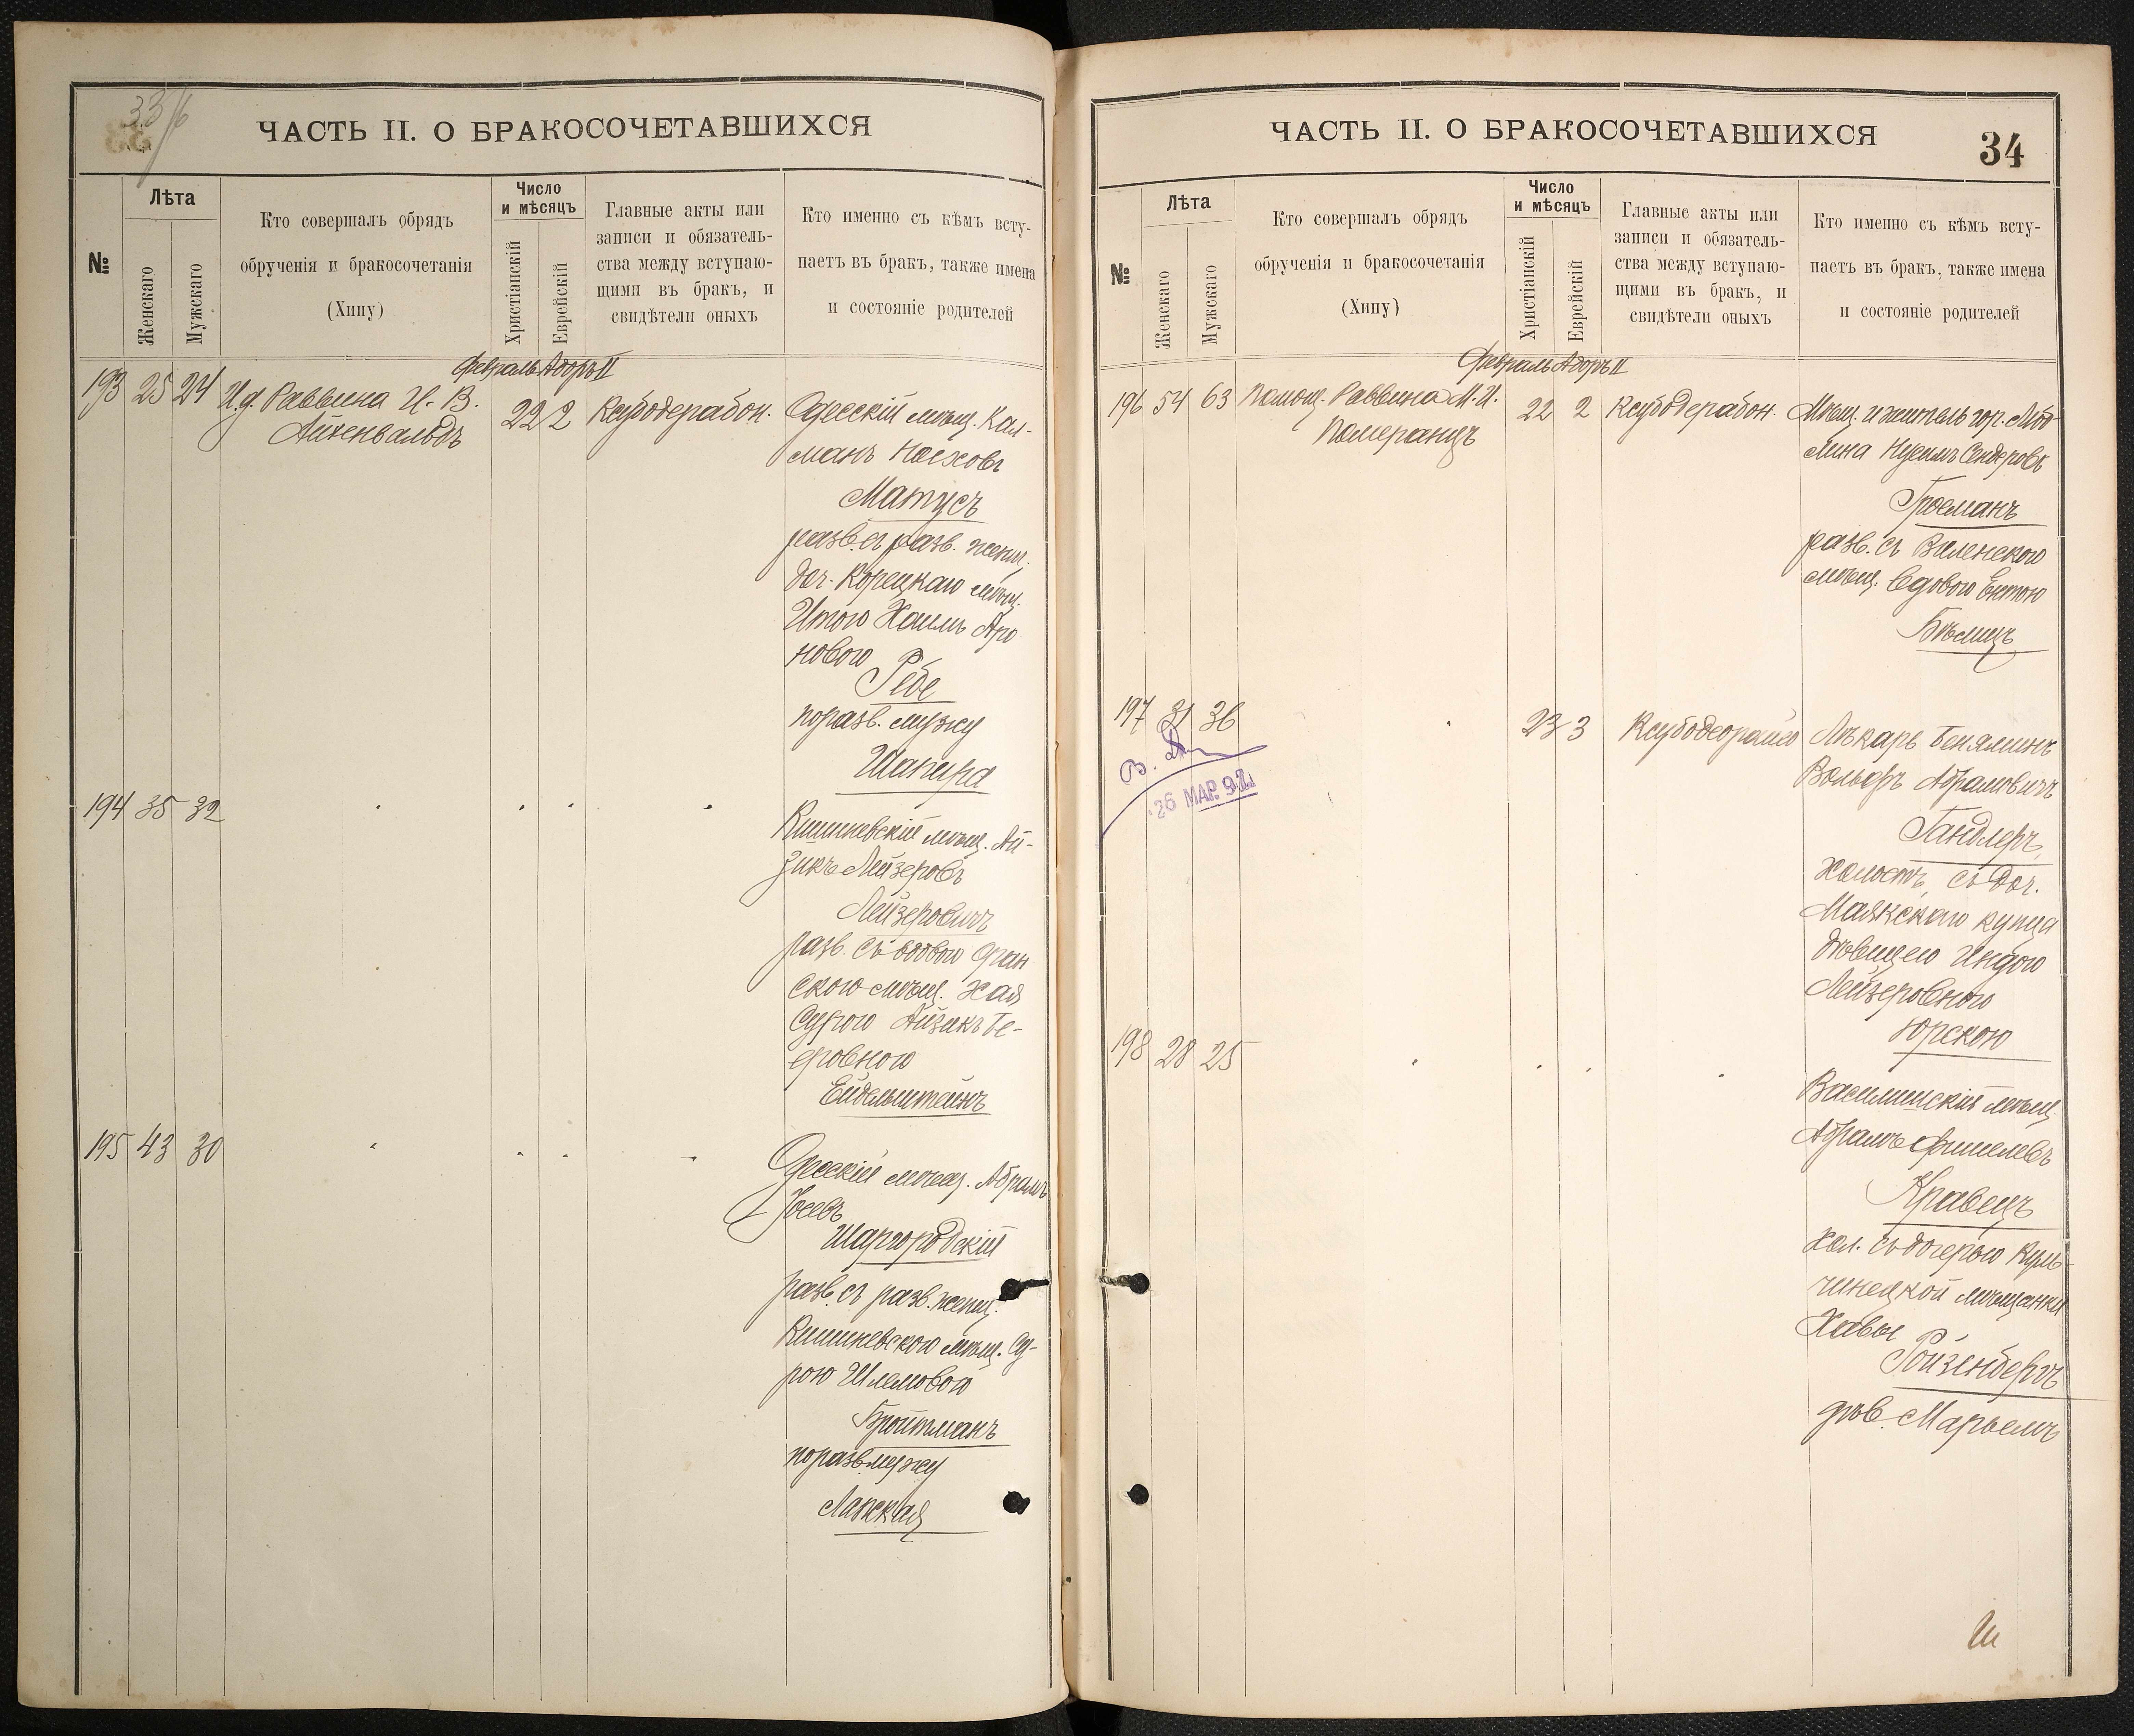 33/6
ЧАСТЬ II. О БРАКОСОЧЕТАВШИХСЯ
№
Лѣта
Женскаго
Мужскаго
Кто совершалъ обрядъ
обрученія и бракосочетанія
(Хипу)
Число
и мѣсяцъ
Христіанскій
Еврейскій
Главные акты или
записи и обязатель-
ства между вступаю-
щими въ бракъ, и
свидѣтели оныхъ
Кто именно съ кѣмъ всту-
паетъ въ бракъ, также имена
и состояніе родителей
Февраль Адоръ II
193 25 24 И.д. Раввина И. В.
Айхенвальдъ
22 2 Ксубодерабон.
Одесскій мѣщ. Кал-
манъ Носховъ
Матусъ
разв. съ разв. женщ.
доч. Корецкаго мѣщ.
Итою Хаимъ Аро
новою
Ребе
по разв. мужу
Шапира
194 35 32
Кишиневскій мѣщ. Ай-
зикъ Лейзеровъ
Лейзеровичъ
разв. съ вдовою
скою мѣщ. Хая
Сурою Айзикъ Бе-
ровною
Ейдельштейнъ
195 43 30
Одесскій мѣщ. Абрамъ
Іосевъ
Шаргородскій
разв. съ разв. женщ.
Кишиневскою мѣщ. Су-
рою Шлемовой
Бройтманъ
по разв. мужу
Ланская
ЧАСТЬ II. О БРАКОСОЧЕТАВШИХСЯ
34
№
Лѣта
Женскаго
Мужскаго
Кто совершалъ обрядъ
обрученія и бракосочетанія
(Хипу)
Число
и мѣсяцъ
Христіанскій
Еврейскій
Главные акты или
записи и обязатель-
ства между вступаю-
щими въ бракъ, и
свидѣтели оныхъ
Кто именно съ кѣмъ всту-
паетъ въ бракъ, также имена
и состояніе родителей
Февраль Адоръ II
196 54 63 Помощ. Раввина М. И.
Померанцъ
22 2 Ксубодерабон.
Мѣщ. и житель гор. Лю-
блина Нусимъ Сендеровъ
Гросманъ
разв. съ Виленскою
мѣщ. вдовою Ентою
Бѣлицъ
197 31 36
23 3 Ксубодеорайсо
Лѣкарь Беняминъ
Вольфъ Абрамовичъ
Гандлеръ,
холостъ, съ доч.
Маякскаго купца
дѣвицею
Лейзеровною
Юрскою
26 МАР. 92
198 28 25
Василишскій мѣщ.
Абрамъ Фишелевъ
Кравецъ
хол. съ дочерью Куль-
чинецкой мѣщанки
Хавы
Ройзенбергъ
дѣв. Марьемъ